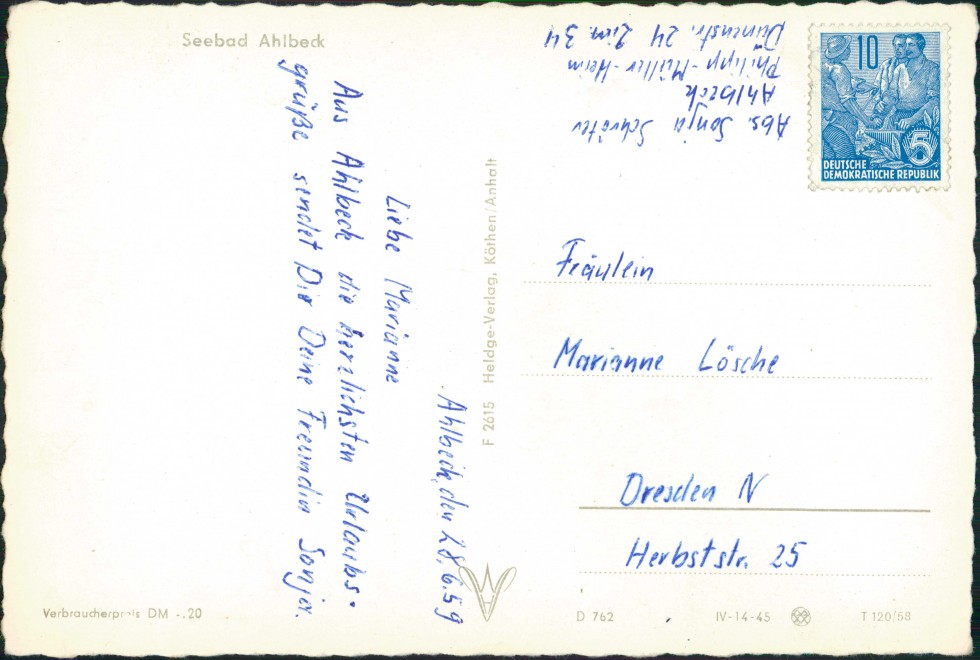 Seebad Ahlbeck
Ahlbeck, den 28.6.59
Liebe Marianne
Aus Ahlbeck die herzlichsten Urlaubs-
grüße sendet Dir Deine Freundin Sonja.
Verbraucherpreis DM -.20
F 2615 Heldge-Verlag, Köthen/Anhalt
Abs. Sonja Schröter
Ahlbeck
Philipp-Müller-Heim
Dünenstr. 24 Zim. 34
10
5
DEUTSCHE
DEMOKRATISCHE REPUBLIK
Fräulein
Marianne Lösche
Dresden N
Herbststr. 25
D 762 IV-14-45 T 120/58